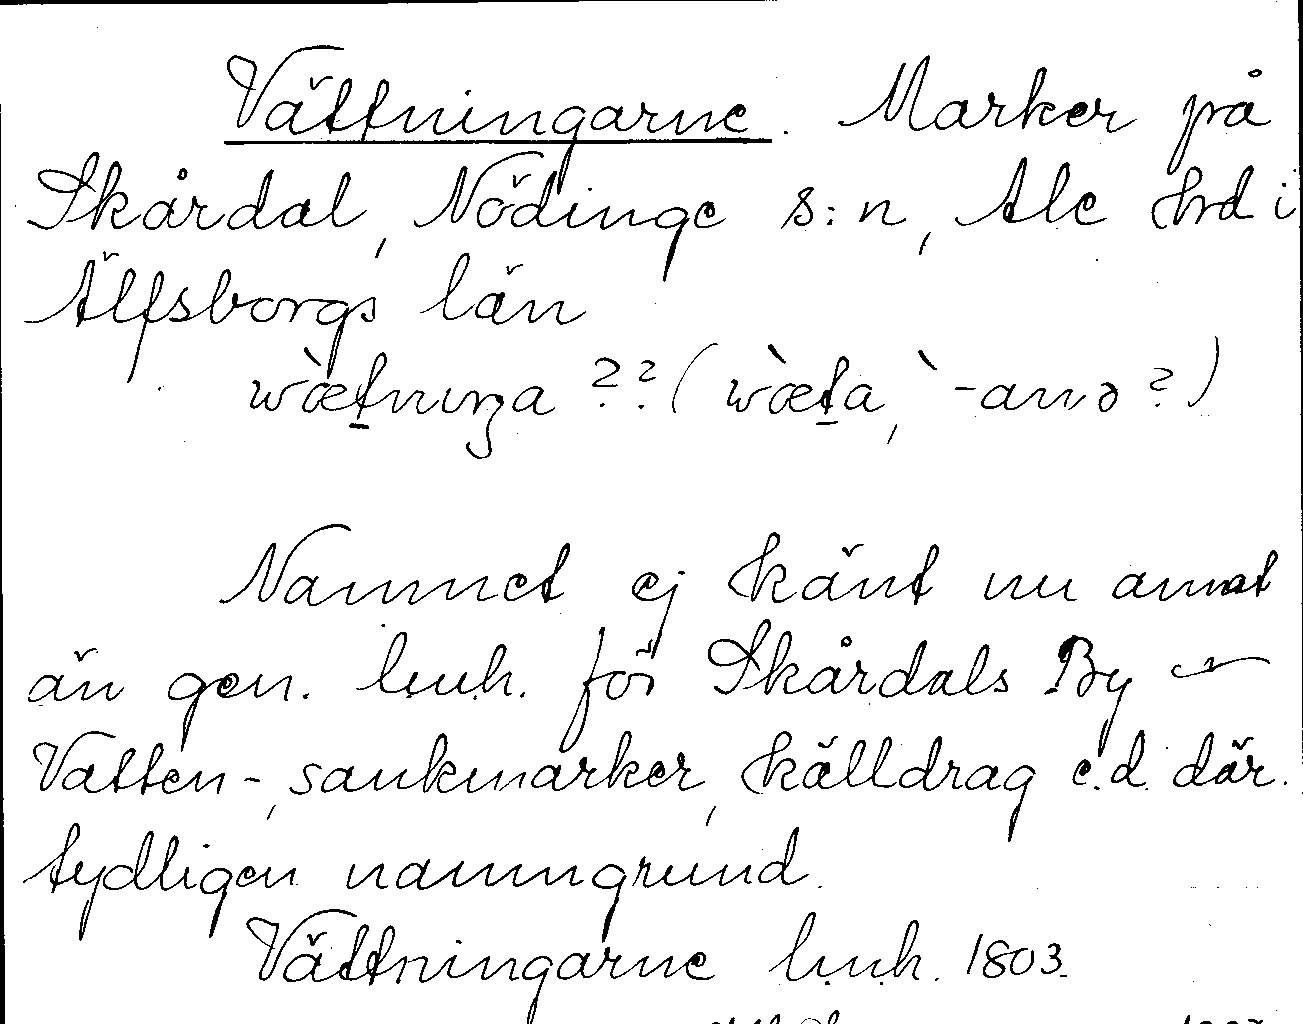 Vättningarne. Marker på
Skårdal, Nödinge s:n, Ale hrd i
Älfsborgs län
wæ̀tnıŋa ?? (wæ̀ta, `-anə ?)
Namnet ej känt nu annat
än gen. lmh. för Skårdals By –
Vatten-, sankmarker, källdrag e.d. där.
tydligen namngrund.
Vättningarne lmh. 1803.